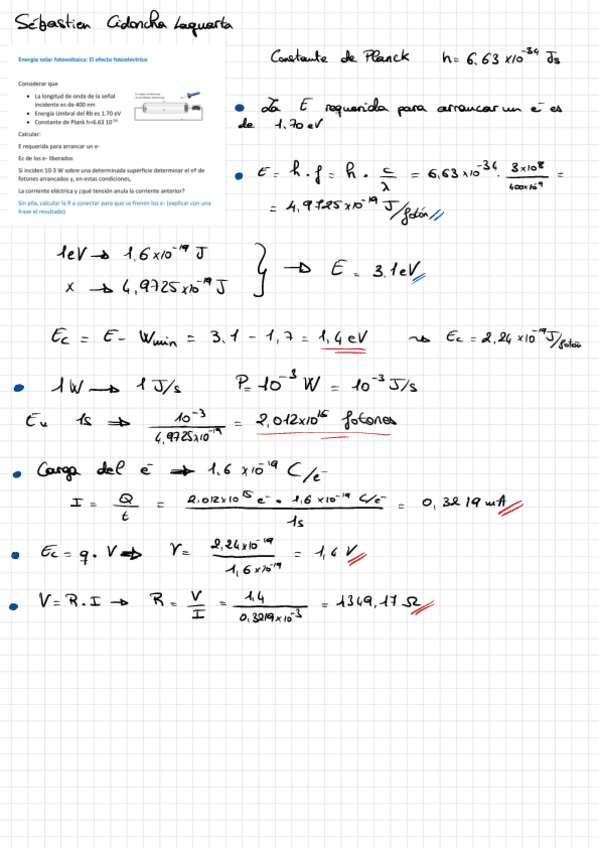 Sébastien Cidoncha Laquarta
Energía solar fotovoltaica: El efecto fotoeléctrico
Considerar que
• La longitud de onda de la señal incidente es de 400 nm
• Energía Umbral del Rb es 1.70 eV
• Constante de Plank h=6.63 10⁻³⁴
Calcular:
E requerida para arrancar un e-
Ec de los e- liberados
Si inciden 10-3 W sobre una determinada superficie determinar el nº de
fotones arrancados y, en estas condiciones,
La corriente eléctrica y ¿qué tensión anula la corriente anterior?
Sin pila, calcular la R a conectar para que se frenen los e- (explicar con una
frase el resultado)
Constante de Planck h = 6,63 x10⁻³⁴ Js
• La E requerida para arrancar un e⁻ es
de 1.70 eV
• E = h·f = h · c/λ = 6,63 x10⁻³⁴ · 3x10⁸/400x10⁻⁹ =
= 4,9725x10⁻¹⁹ J/fotón
1eV → 1,6x10⁻¹⁹ J
x → 4,9725x10⁻¹⁹ J } → E = 3.1eV
Ec = E - Wmin = 3.1 - 1,7 = 1,4 eV ⇝ Ec = 2,24x10⁻¹⁹ J/fotón
• 1W → 1 J/s P= 10⁻³ W = 10⁻³ J/s
En 1s ⇒ 10⁻³/4,9725x10⁻¹⁹ = 2,012x10¹⁵ fotones
• Carga del e⁻ → 1,6 x10⁻¹⁹ C/e⁻
I = Q/t = 2,012x10¹⁵ e⁻ · 1,6 x10⁻¹⁹ C/e⁻/1s = 0,3219 mA
• Ec = q·V ⇒ V = 2,24x10⁻¹⁹/1,6x10⁻¹⁹ = 1,4 V
• V = R·I → R = V/I = 1,4/0,3219x10⁻³ = 1349,17 Ω